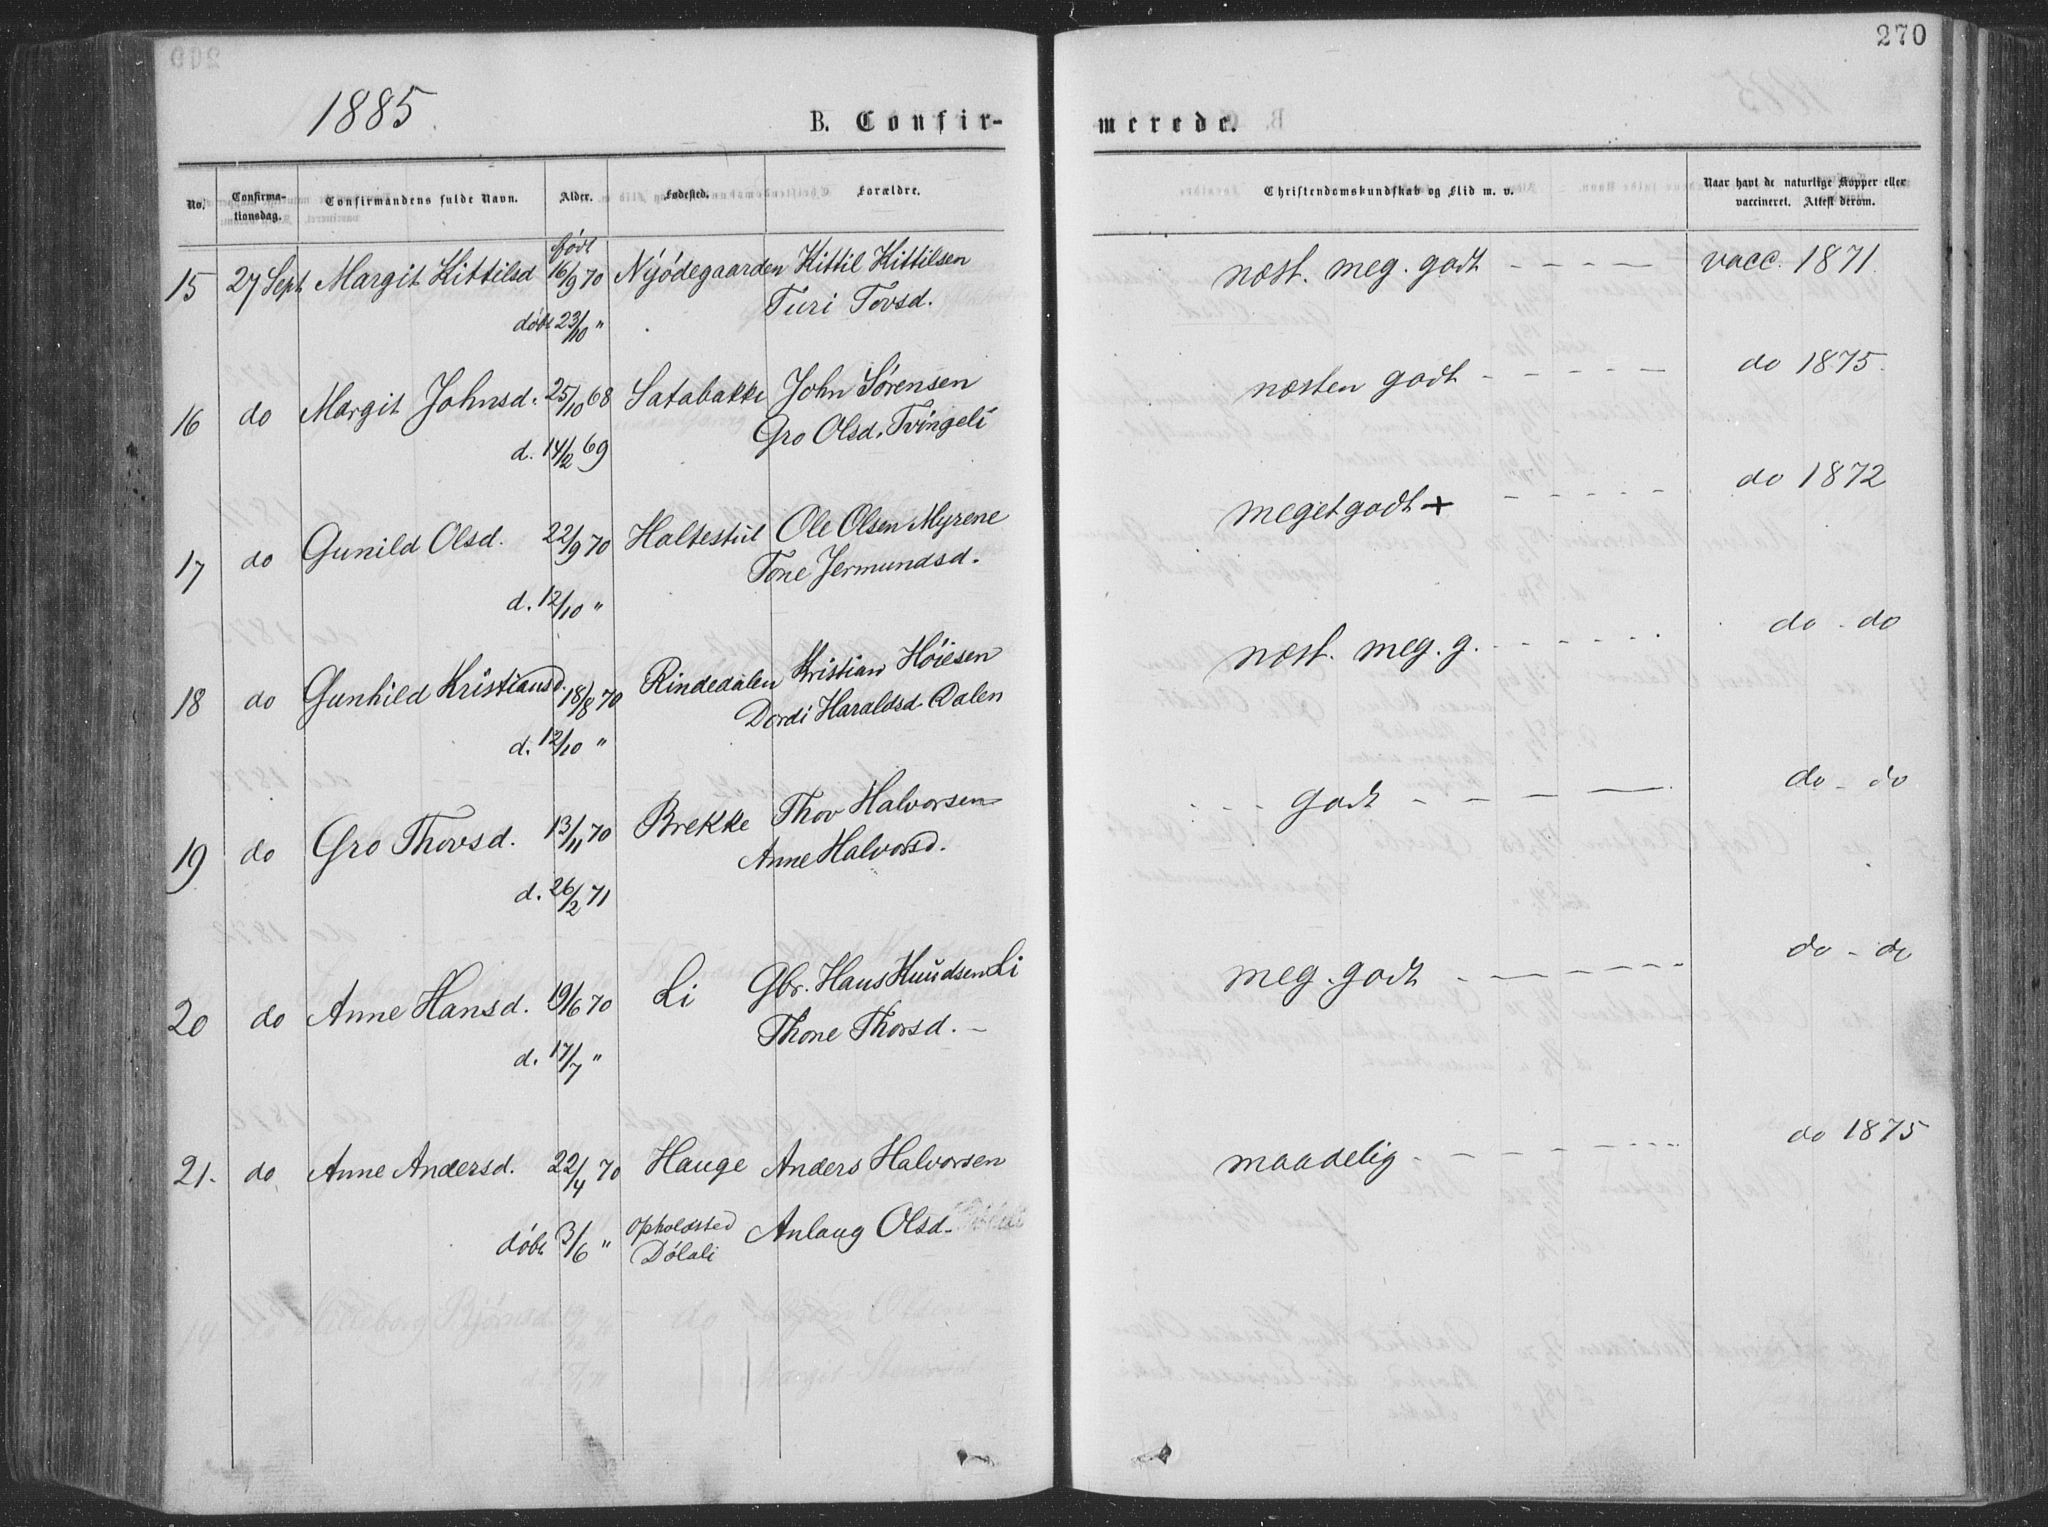 270
1885.
B. Confirmerede.
No. Confirmationsdag. Confirmandens fulde Navn. Alder. Fødested. Forældre. Christendomskundskab og Flid m. v. Naar havt de naturlige Kopper eller vaccineret. Attest derom.
født
15 27 Sept Margit Kittilsd 16/9 70 Nyødegaarden Kittil Kittilsen næst. meg. godt vacc. 1871.
Turi Tovsd.
døbt 23/10 "
16 do Margit Johnsd. 25/10 68 Satabakke John Sørensen næsten godt do 1875.
Gro Olsd. Tvingeli
d. 14/2 69
17 do Gunild Olsd. 22/9 70 Haltestul Ole Olsen Myrene meget godt + do 1872
Tone Jermundsd.
d. 12/10 "
18 do Gunhild Kristiansd. 18/8 70 Rindedalen Kristian Høiesen næst. meg. g. do - do
Dordi Haraldsd. Dalen
d. 12/10 "
19 do Gro Thovsd. 13/11 70 Brekke Thov Halvorsen godt do - do
Anne Halvorsd.
d. 26/2 71
20 do Anne Hansd. 19/6 70 Li Gbr. Hans Knudsen Li meg. godt do - do
Thone Thorsd. -
d. 17/7 "
21. do Anne Andersd. 22/4 70 Hauge Anders Halvorsen maadelig do 1875
døbt 3/6 " Opholdsted Anlaug Olsd.
Dølali